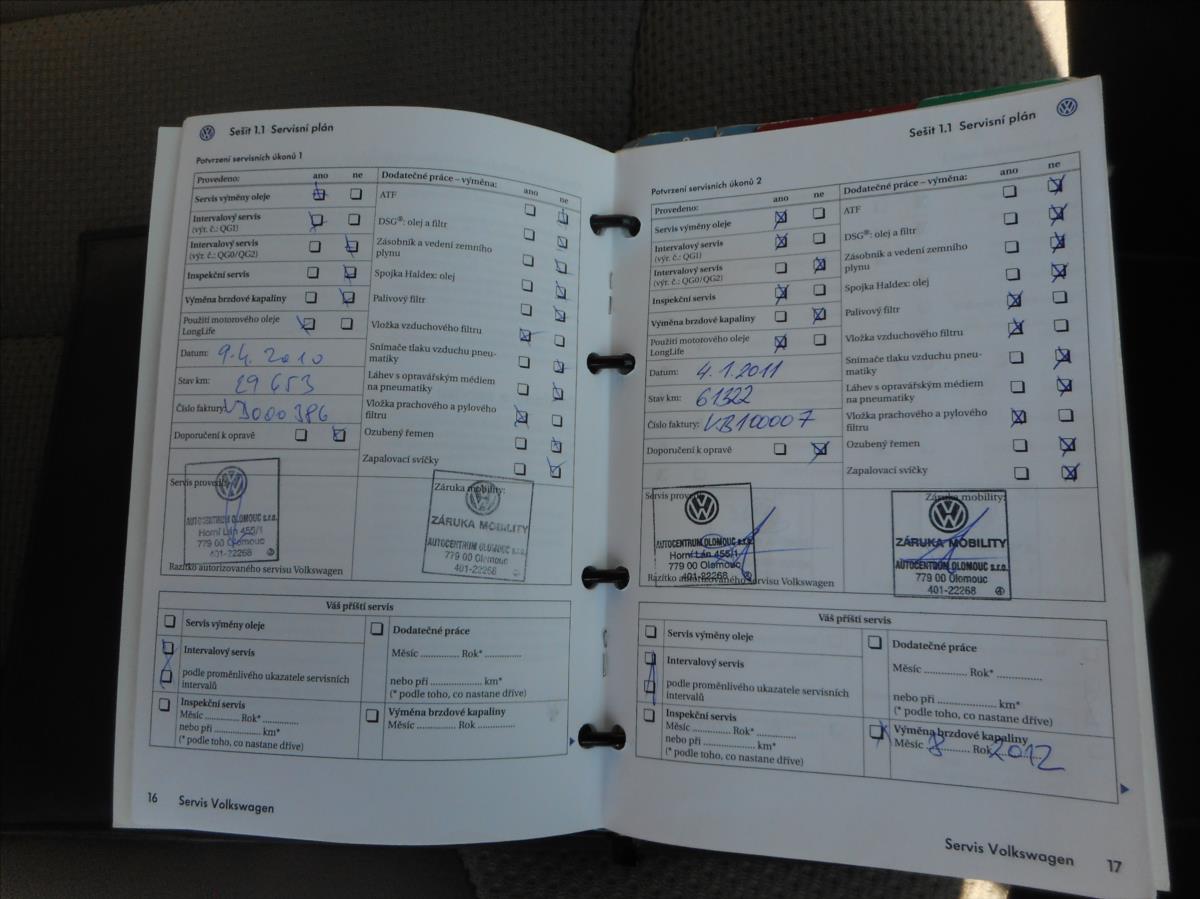 Sešit 1.1 Servisní plán
Potvrzení servisních úkonů 1
Provedeno: ano ne
Servis výměny oleje
Intervalový servis
(výr. č.: QG1)
Intervalový servis
(výr. č.: QG0/QG2)
Inspekční servis
Výměna brzdové kapaliny
Použití motorového oleje
LongLife
Datum: 9.4.2010
Stav km: 29653
Číslo faktury:
Doporučení k opravě
Dodatečné práce – výměna: ano ne
ATF
DSG®: olej a filtr
Zásobník a vedení zemního
plynu
Spojka Haldex: olej
Palivový filtr
Vložka vzduchového filtru
Snímače tlaku vzduchu pneu-
matiky
Láhev s opravářským médiem
na pneumatiky
Vložka prachového a pylového
filtru
Ozubený řemen
Zapalovací svíčky
Servis provedl:
AUTOCENTRUM OLOMOUC s.r.o.
Horní Lán 455/1
779 00 Olomouc
401-22268
Razítko autorizovaného servisu Volkswagen
Záruka mobility:
ZÁRUKA MOBILITY
AUTOCENTRUM OLOMOUC s.r.o.
779 00 Olomouc
401-22268
Váš příští servis
Servis výměny oleje
Intervalový servis
podle proměnlivého ukazatele servisních
intervalů
Inspekční servis
Měsíc .............. Rok* ..............
nebo při ...................... km*
(* podle toho, co nastane dříve)
Dodatečné práce
Měsíc .............. Rok* ..............
nebo při ...................... km*
(* podle toho, co nastane dříve)
Výměna brzdové kapaliny
Měsíc .............. Rok ..............
16 Servis Volkswagen
Sešit 1.1 Servisní plán
Potvrzení servisních úkonů 2
Provedeno: ano ne
Servis výměny oleje
Intervalový servis
(výr. č.: QG1)
Intervalový servis
(výr. č.: QG0/QG2)
Inspekční servis
Výměna brzdové kapaliny
Použití motorového oleje
LongLife
Datum: 4.1.2011
Stav km: 61322
Číslo faktury: VB100007
Doporučení k opravě
Dodatečné práce – výměna: ano ne
ATF
DSG®: olej a filtr
Zásobník a vedení zemního
plynu
Spojka Haldex: olej
Palivový filtr
Vložka vzduchového filtru
Snímače tlaku vzduchu pneu-
matiky
Láhev s opravářským médiem
na pneumatiky
Vložka prachového a pylového
filtru
Ozubený řemen
Zapalovací svíčky
Servis provedl:
AUTOCENTRUM OLOMOUC s.r.o.
Horní Lán 455/1
779 00 Olomouc
401-22268
Razítko autorizovaného servisu Volkswagen
Záruka mobility:
ZÁRUKA MOBILITY
AUTOCENTRUM OLOMOUC s.r.o.
779 00 Olomouc
401-22268
Váš příští servis
Servis výměny oleje
Intervalový servis
podle proměnlivého ukazatele servisních
intervalů
Inspekční servis
Měsíc .............. Rok* ..............
nebo při ...................... km*
(* podle toho, co nastane dříve)
Dodatečné práce
Měsíc .............. Rok* ..............
nebo při ...................... km*
(* podle toho, co nastane dříve)
Výměna brzdové kapaliny
Měsíc 8 Rok 2012
Servis Volkswagen 17